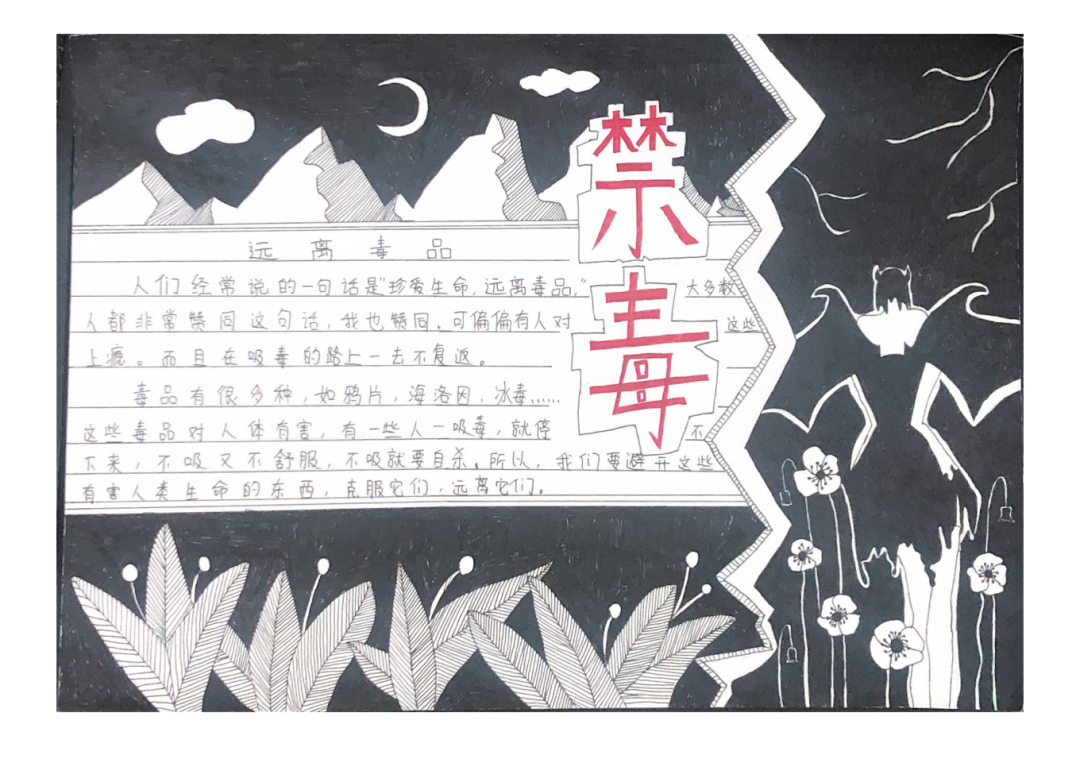 禁毒
远离毒品
人们经常说的一句话是"珍爱生命,远离毒品,"大多数
人都非常赞同这句话,我也赞同。可偏偏有人对这些
上瘾。而且在吸毒的路上一去不复返。
毒品有很多种,如鸦片,海洛因,冰毒……
这些毒品对人体有害,有一些人一吸毒,就停不
下来,不吸又不舒服,不吸就要自杀。所以,我们要避开这些
有害人类生命的东西,克服它们,远离它们。